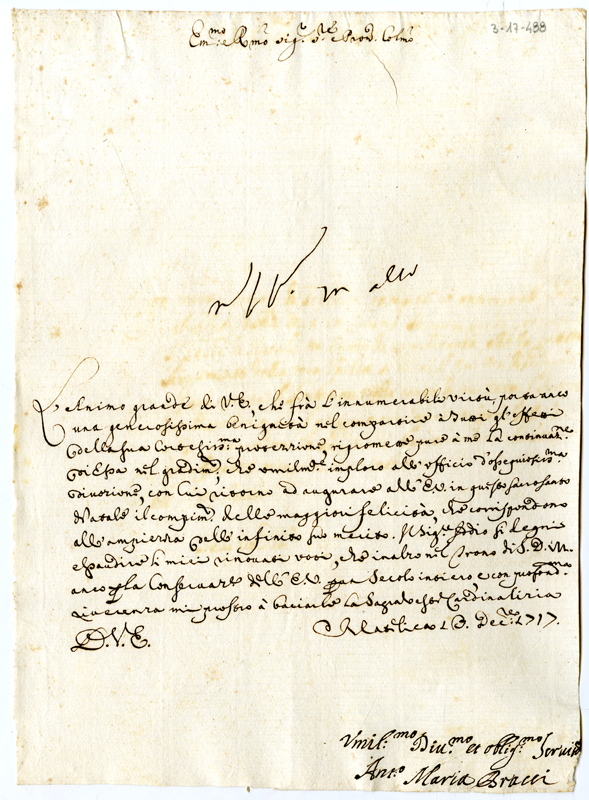 3-17-488
Em.mo e R.mo Sig.r S.re e Pron. Col.mo
L'Animo grande di V.E., che frà l'innumerabile virtù, porta anco
una generosissima benignità nel compartire à tutti gl'effetti
della sua protezzione, ripromette pure à me la continuaz.ne
di Essa nel gradim.to, che umilm.te imploro all'officio d'ossequiosis.ma
divozione, con cui ritorno ad augurare all'E.V. in questo sacrosanto
Natale il compim.to delle maggiori felicità, che corrispondono
all'ampiezza dell'infinito suo merito. Il Sig.re Iddio si degni
esaudire li miei rinovati voti, che inalzo nel Trono di S.D.M.
anco p la Conservare dell'E.V. p un Secolo intiero, e con profond.ma
riverenza mi prostro à baciarle la Sagra Veste Cardinalizia
D.V.E. Matelica 18. Dec.re 1717.
Vmil.mo Diu.mo et oblig.mo Seruit.
Ant.o Maria Bracci